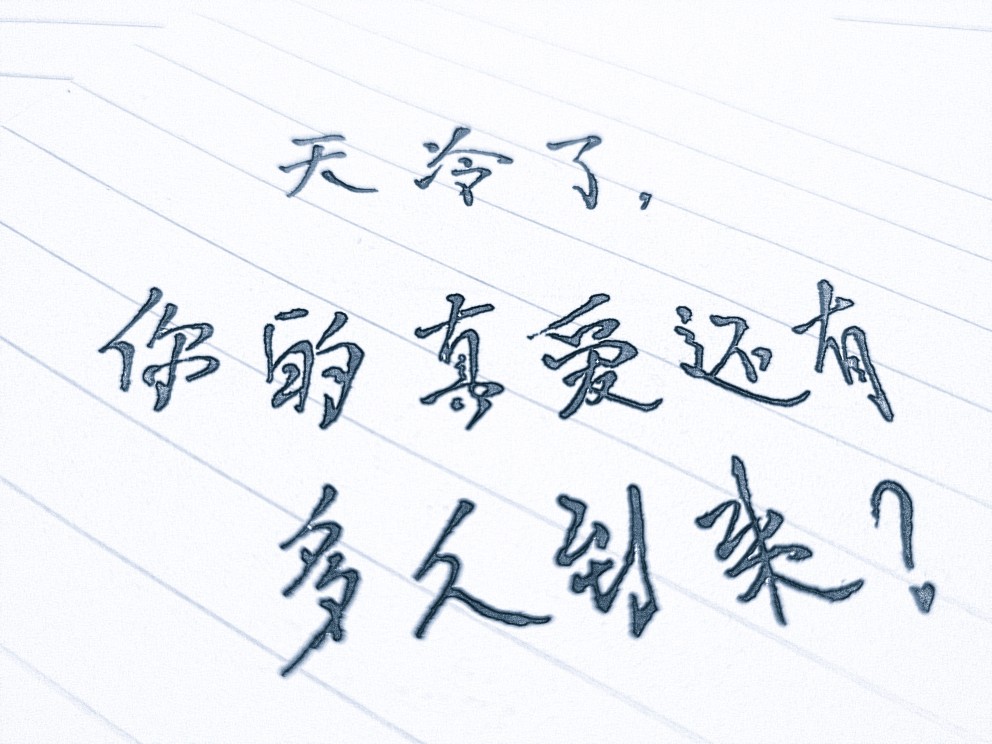 天冷了,
你的真爱还有
多人到来?